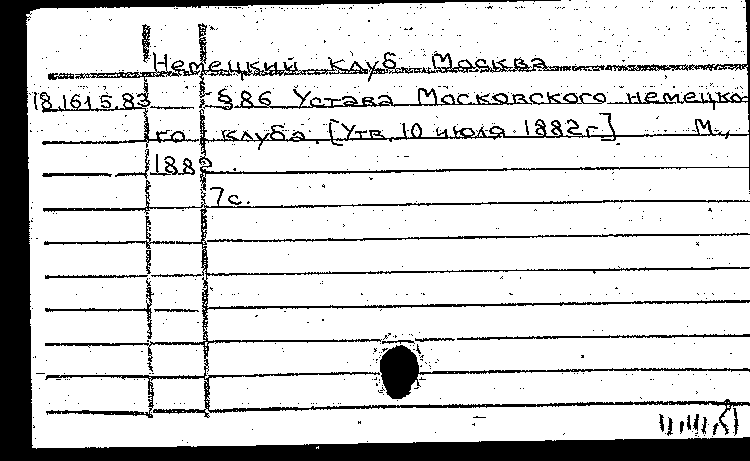 Немецкий клуб Москва
18.161.5.83 §86 Устава Московского немецко-
го клуба. [Утв. 10 июля 1882г.] М.,
1882.
7с.